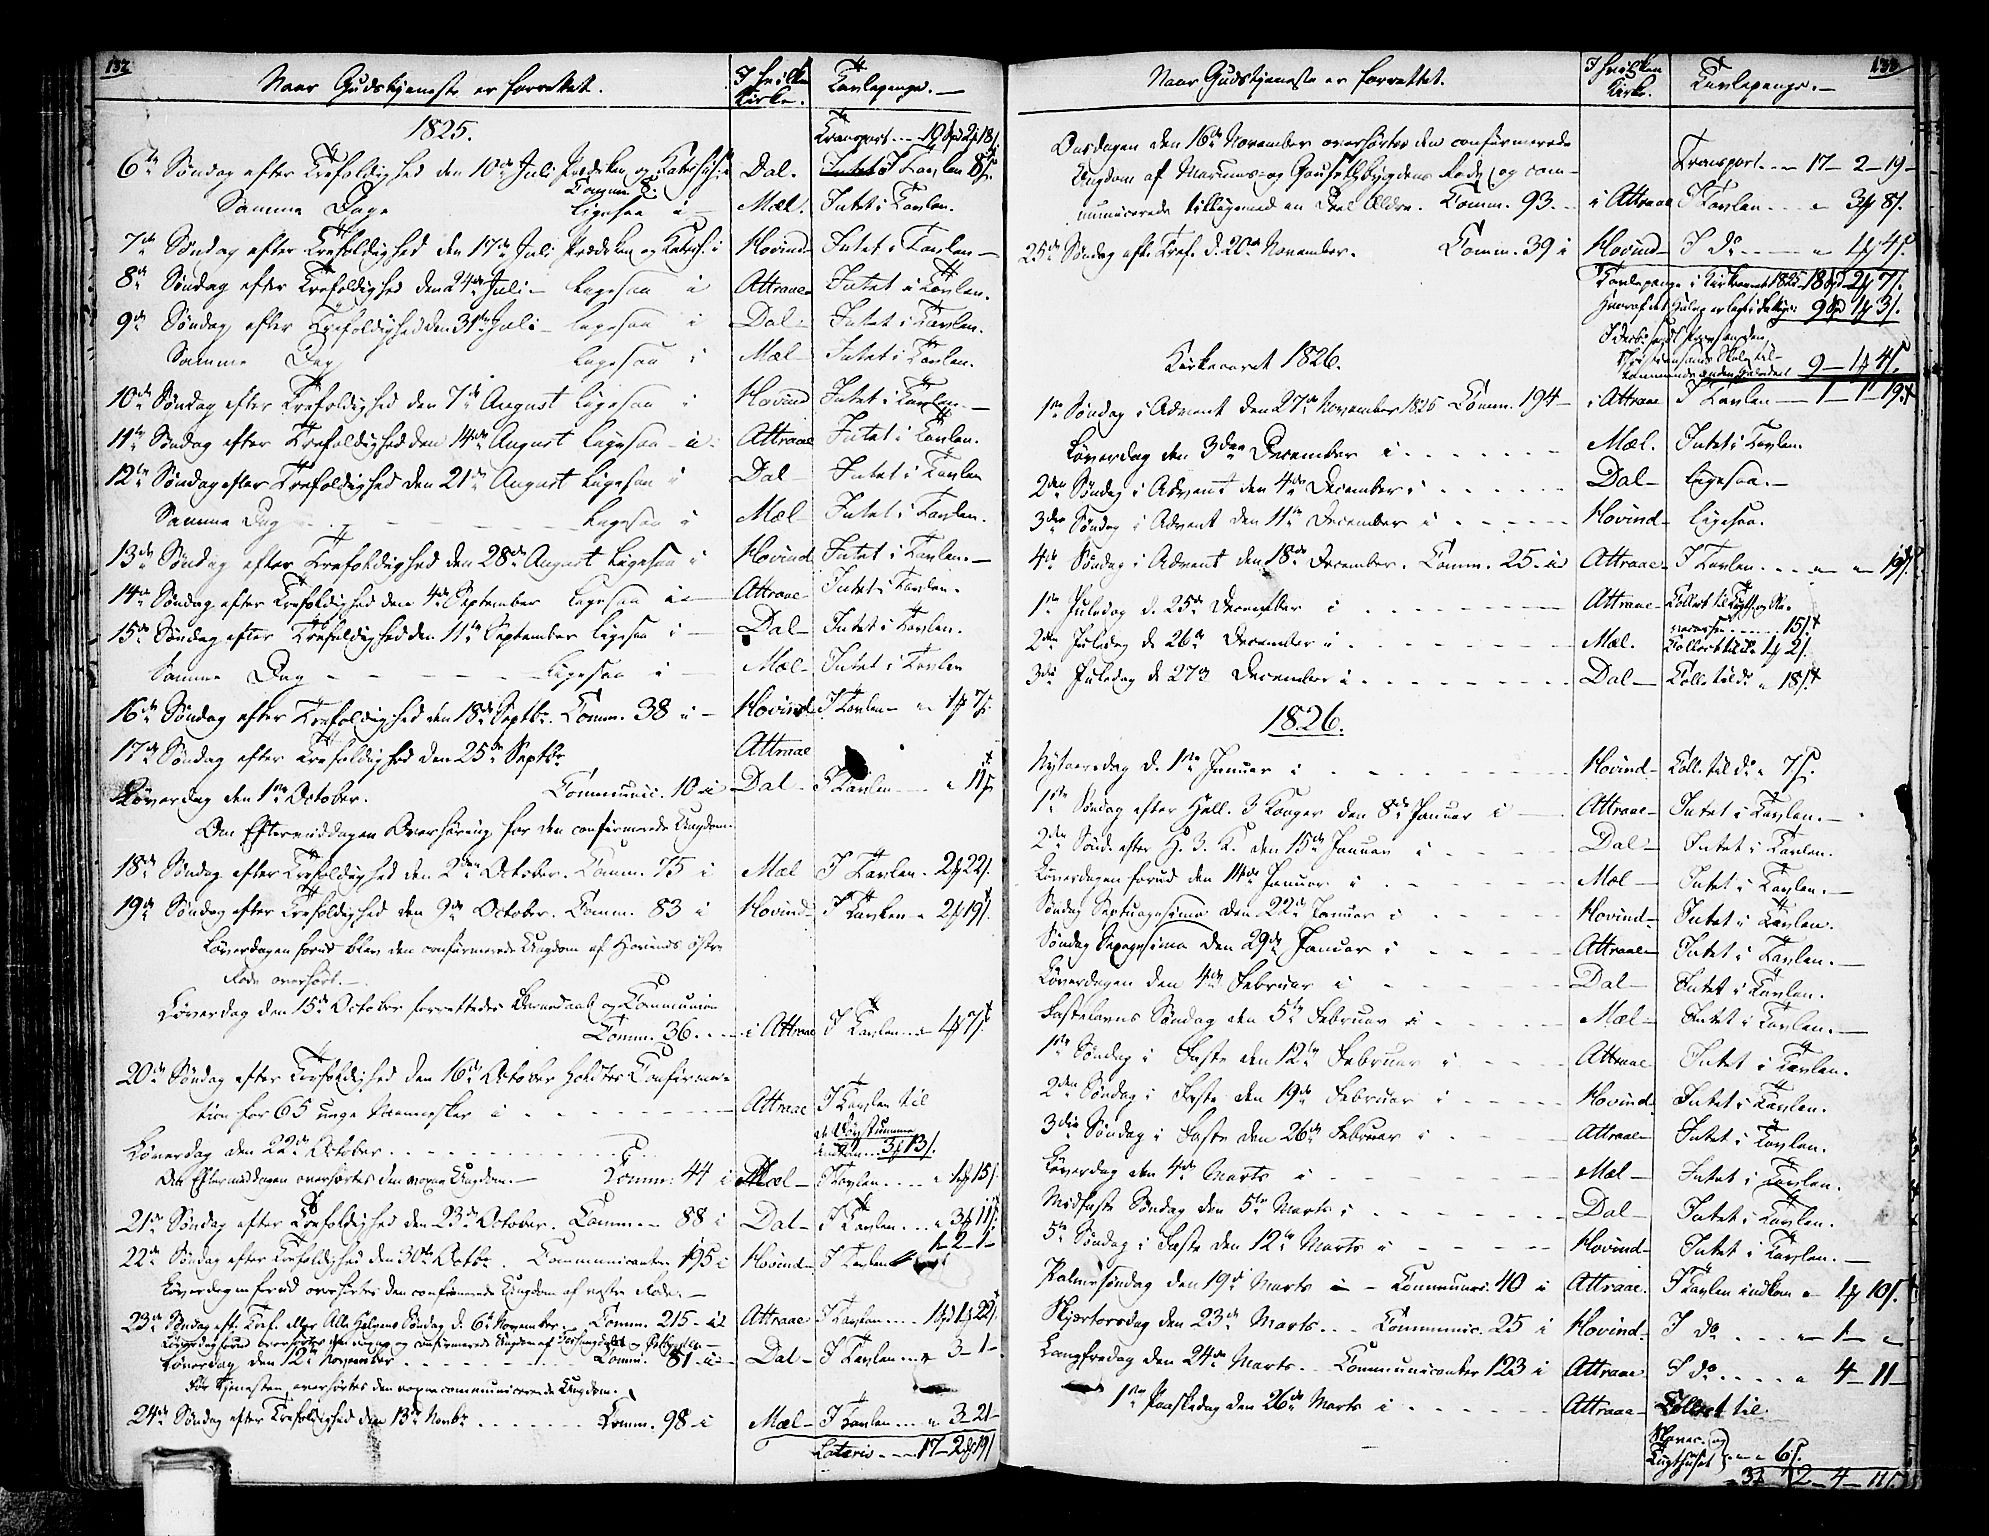 132
Naar Gudstjeneste er forrettet.
I hvilken Kirke.
Tavlepenge.
1825.
Transport
6te Søndag efter Trefoldighed den 10de Juli Prædiken og Catechis:
Dal.
Intet i Tavlen
Samme Dage ligesaa i
Mæl.
Intet i Tavlen.
7de Søndag efter Trefoldighed den 17de Juli Prædiken og Katech. i
Hovind
Intet i Tavlen
8de Søndag efter Trefoldighed den 24de Juli ligesaa i
Attraae
Intet i Tavlen.
9de Søndag efter Trefoldighed den 31te Juli ligesaa i
Dal
Intet i Tavlen.
Samme Dag ligesaa i
Mæl
Intet i Tavlen.
10de Søndag efter Trefoldighed den 7de August ligesaa i
Hovind
Intet i Tavlen.
11te Søndag efter Trefoldighed den 14de August ligesaa i
Attraae
Intet i Tavlen.
12te Søndag efter Trefoldighed den 21de August ligesaa i
Dal
Intet i Tavlen
Samme Dag ligesaa i
Mæl
Intet i Tavlen.
13de Søndag efter Trefoldighed den 28de August ligesaa i
Hovind
Intet i Tavlen.
14de Søndag efter Trefoldighed den 4de September ligesaa i
Attraae
Intet i Tavlen.
15de Søndag efter Trefoldighed den 11te September ligesaa i
Dal
Intet i Tavlen.
Samme Dag ligesaa i
Mæl
Intet i Tavlen
16de Søndag efter Trefoldighed den 18de Septbr. Comm. 38 i
Hovind
I Tavlen
17de Søndag efter Trefoldighed den 25de Septbr
Attraae
Løverdag den 1ste October. Communic. 10 i
Dal
I Tavlen
Om Eftermiddagen Overhøring for den confirmerede Ungdom.
18de Søndag efter Trefoldighed den 2den October. Comm. 75 i
Mæl
I Tavlen
19de Søndag efter Trefoldighed den 9de October. Comm. 83 i
Hovind
I Tavlen
Løverdagen forud blev den confirmerede Ungdom af Hovinds østre
Rode overhørt.
Løverdag den 15de October forrettedes Barnedaab og Communion
Comm. 36
i Attraae
I Tavlen
20de Søndag efter Trefoldighed den 16de October holdtes Confirma-
tion for 65 unge Mennesker i
Attraae
I Tavlen til
Løverdag den 22de October
Om Eftermiddagen overhørtes den voxne Ungdom. Comm. 44 i
Mæl
I Tavlen
21de Søndag efter Trefoldighed den 23de October. Comm. 88 i
Dal
I Tavlen
22de Søndag efter Trefoldighed den 30te Octbr. Communicanter 195 i
Hovind
I Tavlen 1 2 1
Løverdagen forud overhørtes den confirmerede Ungdom af vestre Rode.
23de Søndag eft. Tref. eller Alle Helgens Søndag d. 6te November. Comm. 215 i
Attraae
I Tavlen
Løverdag den 12te November Comm. 81 i
Dal
I Tavlen 3 1
Før Tjenesten overhørtes den voxne communicerende Ungdom.
24de Søndag efter Trefoldighed den 13de Novbr Comm. 98 i
Mæl
I Tavlen 3 21
Lateris 17 2 19
Naar Gudstjeneste er forrettet.
I hvilken Kirke.
Tavlepenge.
Onsdagen den 16de November overhørtes den confirmerede
Transport 17 2 19
Ungdom af Marums og Gausetbygdens Rode, og com-
municerede tilligemed en Deel Ældre. Comm. 93.
i Attraae
I Tavlen
25de Søndag eft. Tref. d. 20de November. Comm. 39 i
Hovind
I do
Kirkeaaret 1826.
1ste Søndag i Advent den 27de November 1825 Comm. 194
i Attraae
I Tavlen 1 1 19
Løverdag den 3die December i
Mæl.
Intet i Tavlen.
2den Søndag i Advent den 4de December i
Dal
Ligesaa.
3die Søndag i Advent den 11te December i
Hovind
Ligesaa.
4de Søndag i Advent den 18de December. Comm. 25 i
Attraae
I Tavlen
1ste Juledag d. 25de December i
Attraae
2den Juledag d. 26de December i
Mæl.
3die Juledag d. 27 December i
Dal
1826.
Nytaarsdag d. 1ste Januar i
Hovind
Coll. til do 7
1ste Søndag efter Hell. 3 Konger den 8de Januar i
Attraae
Intet i Tavlen.
2den Sønd. efter H. 3. K. den 15de Januar i
Dal
Intet i Tavlen.
Løverdagen forud den 14de Januar i
Mæl
Intet i Tavlen.
Søndag Septuagesima den 22de Januar i
Hovind
Intet i Tavlen.
Søndag Sexagesima den 29de Januar i
Attraae
Intet i Tavlen.
Løverdagen den 4de Februar i
Dal
Intet i Tavlen.
Fastelavns Søndag den 5te Februar i
Mæl
Intet i Tavlen.
1ste Søndag i Faste den 12te Februar i
Attraae
Intet i Tavlen.
2den Søndag i Faste den 19de Februar i
Hovind
Intet i Tavlen.
3die Søndag i Faste den 26de Februar i
Attraae
Intet i Tavlen.
Løverdag den 4de Marts i
Mæl
Intet i Tavlen.
Midfaste Søndag den 5te Marts i
Dal
Intet i Tavlen.
5te Søndag i Faste den 12te Marts i
Hovind
Intet i Tavlen.
Palmesøndag den 19de Marts i Communic. 40 i
Attraae.
I Tavlen indkom
Skjærtorsdag den 23de Marts Communic. 25 i
Hovind
I do 1
Langfredag den 24de Marts Communicanter 123 i
Attraae
I do 4 11
1ste Paaskedag den 26de Marts i
Attraae
Collect til
Slaver og
Tugthuset 6